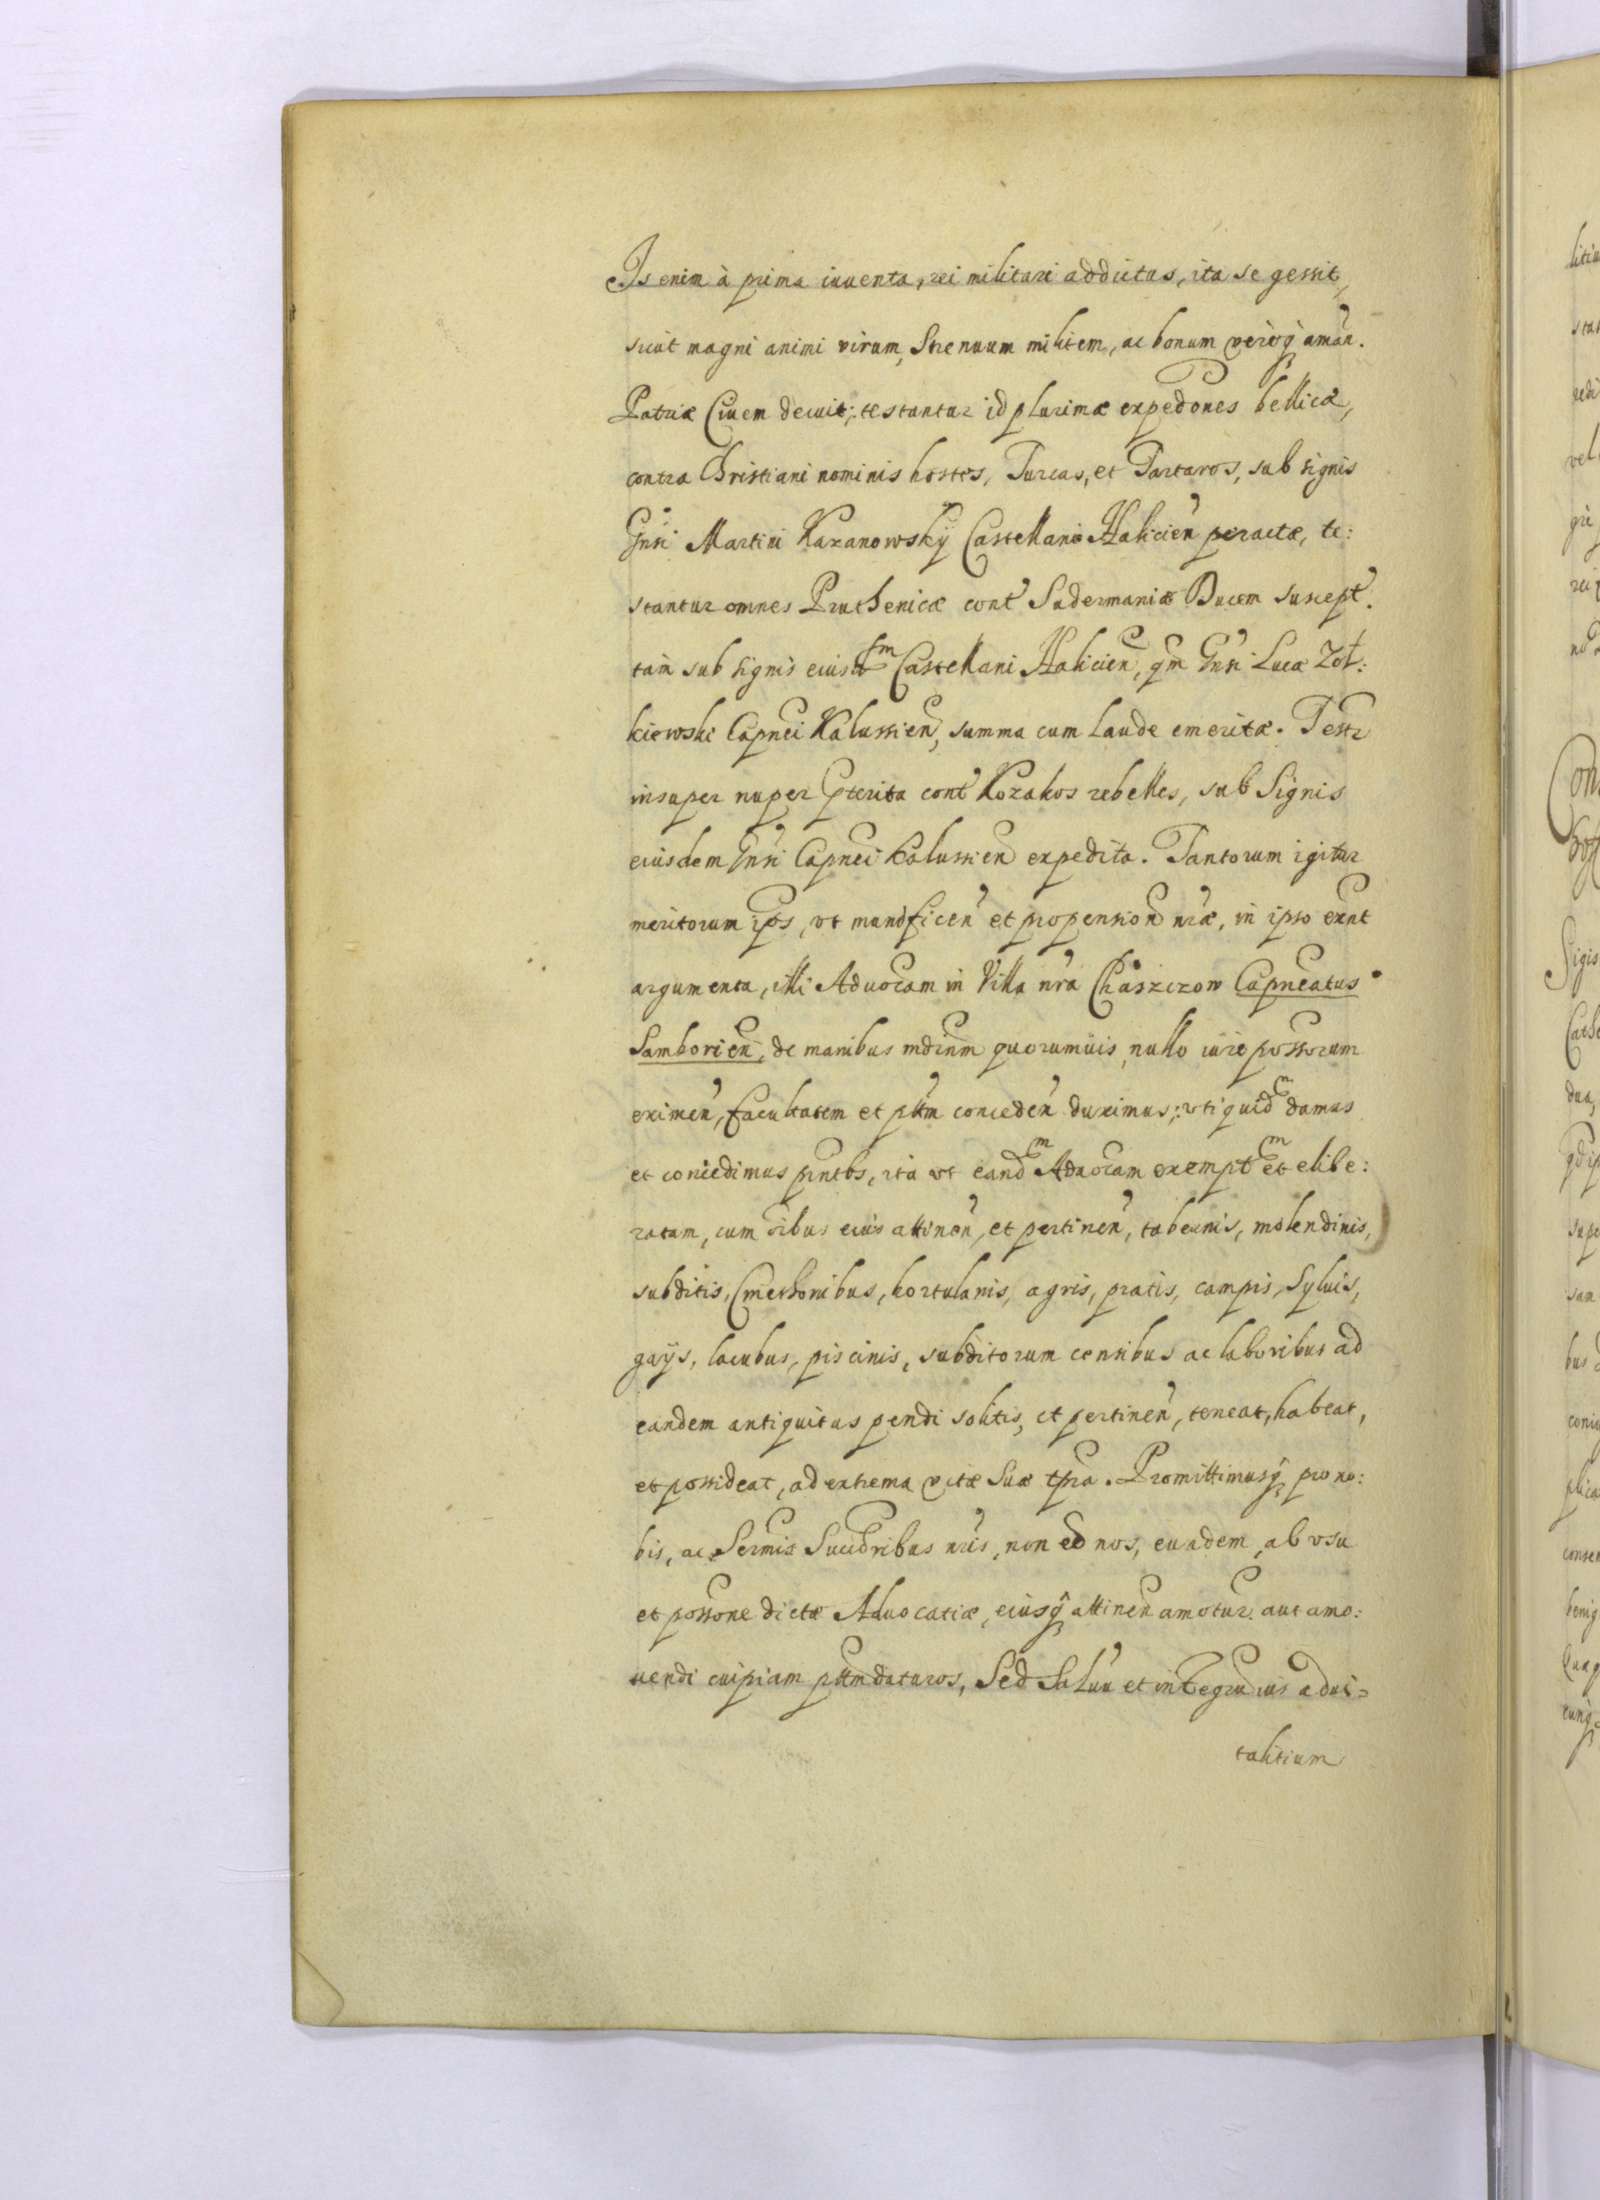 Is enim à prima iuuenta, rei militari addictus, ita se gessit,
sicut magni animi virum, Strenuum militem, ac bonum veròq̃ amãn.
Patriæ Ciuem decuit; testantur id plurimæ expedões bellicæ,
contra Christiani nominis hostes, Turcas, et Tartaros, sub signis
Gñsi Martini Kazanowskÿ Castellani Halicieñ peractæ, te:
stantur omnes Pruthenicæ cont̃ Sudermaniæ Ducem suscept.
tam sub signis eiusdm Castellani Halicieñ, qm̃ Gñsi Lucæ Zoł:
kiewski Capnei Kalussieñ, summa cum laude emeritæ. Testr
insuper nuper pterita cont̃ Kozakos rebelles, sub Signis
eiusdem Gñsi Capnei Kalussieñ expedita. Tantorum igitur
meritorum ips, vt munificeñ et propensioñ nræ, in ipso extnt
argumenta, illi Aduocam in Villa nra Chaszczow Capneatus
Samborieñ, de manibus mdinm quorumuis nullo iure possorum
eximeñ, facultatem et pttm concedeñ duximus; vti quidm damus
et concedimus pntbs, ita vt eandm Aduocam exemptm et elibe:
ratam, cum oibus eius attineñ, et pertineñ, tabernis, molendinis,
subditis, Cmethonibus, hortulanis, agris, pratis, campis, Syluis,
gaÿs, lacubus, piscinis, subditorum censibus ac laboribus ad
eandem antiquitus pendi solitis, et pertineñ, teneat, habeat,
et possideat, ad extrema vitæ suæ tpra. Promittimusq̃ pro no:
bis, ac Sermis Succdribus nris, non eð nos, eundem, ab vsu
et possone dictæ Aduocatiæ, eiusq̃ attineñ amotur. aut amo:
uendi cuipiam pttm daturos, Sed Saluu et integru ius adui=
talitium